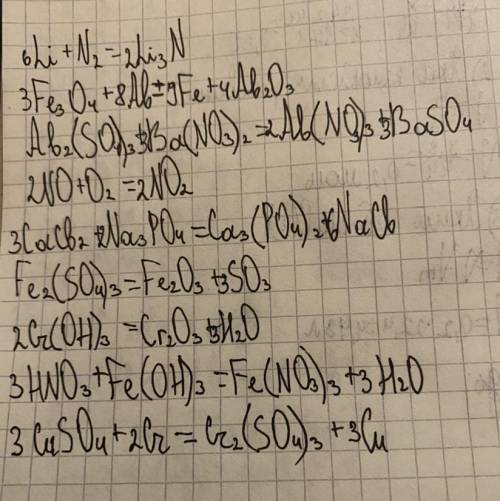 6Li + N2 = 2Li3N
3Fe3O4 + 8Al = 9Fe + 4Al2O3
Al2(SO4)3 + 3Ba(NO3)2 = 2Al(NO3)3 + 3BaSO4
2NO + O2 = 2NO2
3CaCl2 + 2Na3PO4 = Ca3(PO4)2 + 6NaCl
Fe2(SO4)3 = Fe2O3 + 3SO3
2Cr(OH)3 = Cr2O3 + 3H2O
3HNO3 + Fe(OH)3 = Fe(NO3)3 + 3H2O
3CuSO4 + 2Cr = Cr2(SO4)3 + 3Cu